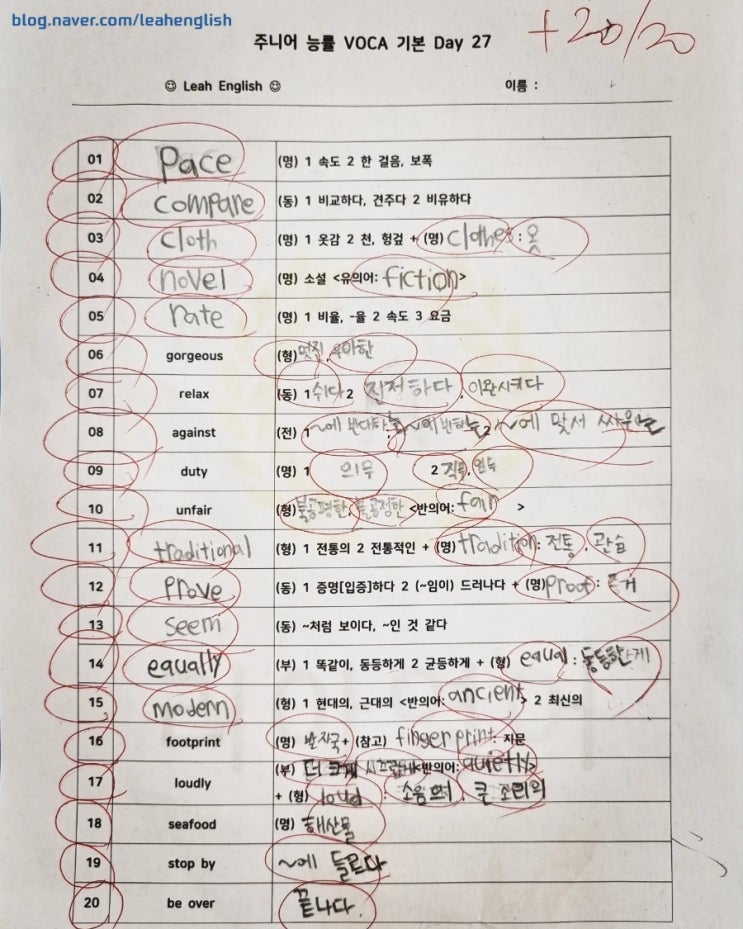 blog.naver.com/leahenglish
주니어 능률 VOCA 기본 Day 27
+20/20
☺ Leah English ☺ 이름 :
01 pace (명) 1 속도 2 한 걸음, 보폭
02 compare (동) 1 비교하다, 견주다 2 비유하다
03 cloth (명) 1 옷감 2 천, 헝겊 + (명) clothes : 옷
04 novel (명) 소설 <유의어: fiction>
05 rate (명) 1 비율, -율 2 속도 3 요금
06 gorgeous (형) 멋진, 우아한
07 relax (동) 1 쉬다 2 진정하다, 이완시키다
08 against (전) 1 ~에 반대하는 2 ~에 맞서 싸우는
09 duty (명) 1 의무 2 직무,
10 unfair (형) 불공평한, 불공정한 <반의어: fair >
11 traditional (형) 1 전통의 2 전통적인 + (명) tradition : 전통, 관습
12 prove (동) 1 증명[입증]하다 2 (~임이) 드러나다 + (명) proof : 증거
13 seem (동) ~처럼 보이다, ~인 것 같다
14 equally (부) 1 똑같이, 동등하게 2 균등하게 + (형) equal : 동등한
15 modern (형) 1 현대의, 근대의 <반의어: ancient> 2 최신의
16 footprint (명) 발자국 + (참고) fingerprint: 지문
17 loudly (부) 더 크게 시끄럽게 <반의어: quietly>
+ (형) loud : 큰 소리의
18 seafood (명) 해산물
19 stop by ~에 들르다
20 be over 끝나다.